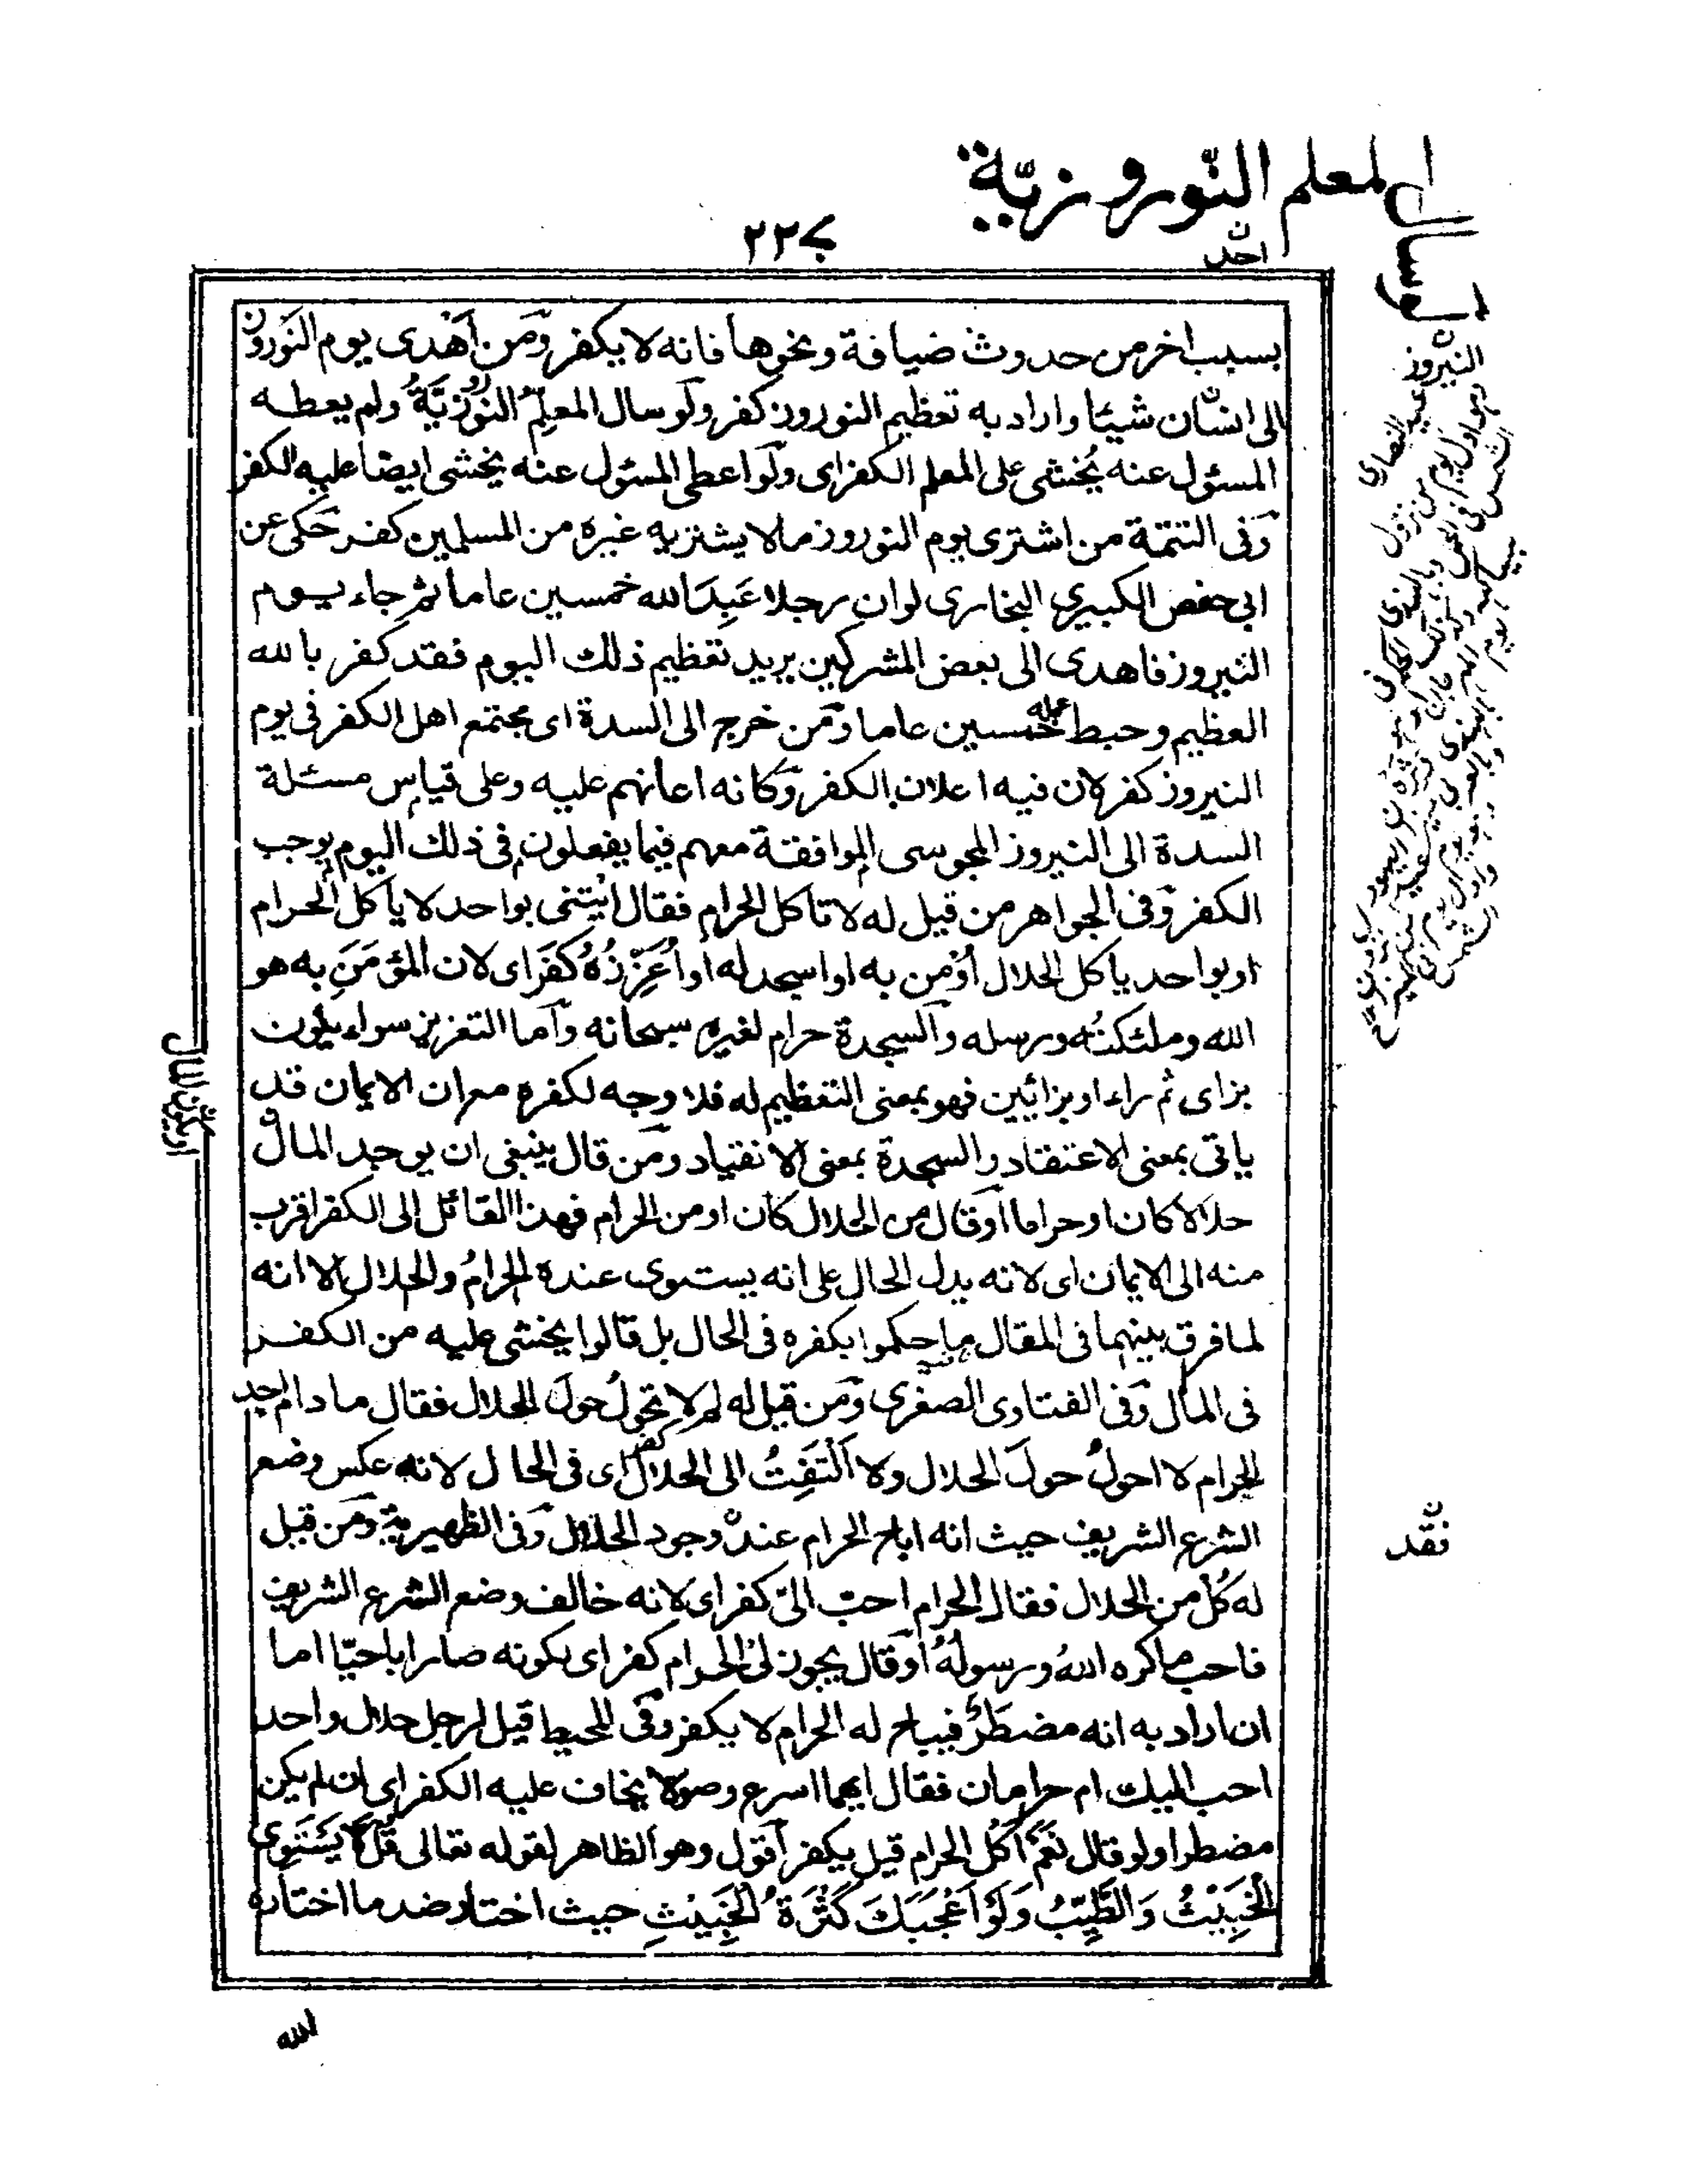 لو سال المعلم النّوروزيّة
احد
٢٢٧
بسبب اخر من حدوث ضيافة ونحوها فانه لا يكفر ومن أهْدى يوم النَوروز
الى انسان شيئا واراد به تعظيم النوروز كفر ولو سال المعلِمُ النوروزيَّةُ ولم يعطه
المسئول عنه يُخشى على المعلم الكفر اى ولو اعطى المسئول عنه يخشى ايضا عليه الكفر
وفى التتمّة من اشترى يوم النوروز ما لا يشتريه غيره من المسلمين كفر حَكى عن
ابى حفص الكبيرى البخارى لو ان رجلا عَبِدَ الله خمسين عاما ثم جاء يوم
النيروز فاهدى الى بعض المشركين يريد تعظيم ذلك اليوم فقد كفر بالله
العظيم وحبط عمله خمسين عاما ومن خرج الى السدة اى مجتمع اهل الكفر فى يوم
النيروز كفر لان فيه اعلان بالكفر وكانه اعانهم عليه وعلى قياس مسئلة
السدة الى النيروز المجوسى الموافقة معهم فيما يفعلون فى ذلك اليوم يوجب
الكفر وفى الجواهر من قيل له لا تاكل الحرام فقال ايْتنى بواحد لا ياكل الحرام
او بواحد ياكل الحلال أؤمن به او اسجد له او اُعَزِّزُهُ كفَر اى لان المؤمَنَ به هو
الله وملئكتُه ورسله والسجدة حرام لغيره سبحانه واما التعزيز سواء يكون
بزاى ثم راء او بزائين فهو بمعنى التعظيم له فلا وجه لكفره مع ان الايمان قد
ياتى بمعنى الاعتقاد والسجدة بمعنى الانقياد ومن قال ينبغى ان يوجد المال
حلالا كان او حراما او قال من الحلال كان او من الحرام فهذا القائل الى الكفر اقرب
منه الى الايمان اى لانه يدل الحال على انه يستوى عنده الحرامُ والحلال الا انه
لما فرق بينهما فى المقال ما حكموا بكفره فى الحال بل قالوا يخشى عليه من الكفر
فى المآل وفى الفتاوى الصغرى ومن قيل له لم لا تحولُ حولَ الحلال فقال ما دام اجد
الحرام لا احولُ حولَ الحلال ولا اَلْتَفِتُ الى الحلال كفر اى فى الحال لانه عكس وضع
الشرع الشريف حيث انه اباح الحرام عند وجود الحلال وفى الظهيرية ومن قيل
له كُلْ من الحلال فقال الحرام احبّ الىّ كفر اى لانه خالف وضع الشرع الشريف
فاحب ما كره اللهُ ورسولُهُ او قال يجوز لى الحرام كفر اى لكونه صار اباحيّا اما
ان اراد به انه مضطَرٌّ فيباح له الحرام لا يكفر وفى المحيط قيل لرجل حلال واحد
احب اليك ام حرامان فقال ايهما اسرع وصولا يخاف عليه الكفر اى ان لم يكن
مضطرا ولو قال نَعَم اَكْل الحرام قيل يكفر أقول وهو الظاهر لقوله تعالى قُلْ لَا يَسْتَوِى
الْخَبِيْثُ وَالطَّيِّبُ وَلَوْ اَعْجَبَكَ كَثْرَةُ الْخَبِيْثِ حيث اختار ضد ما اختاره
الله
النيروز
نقد